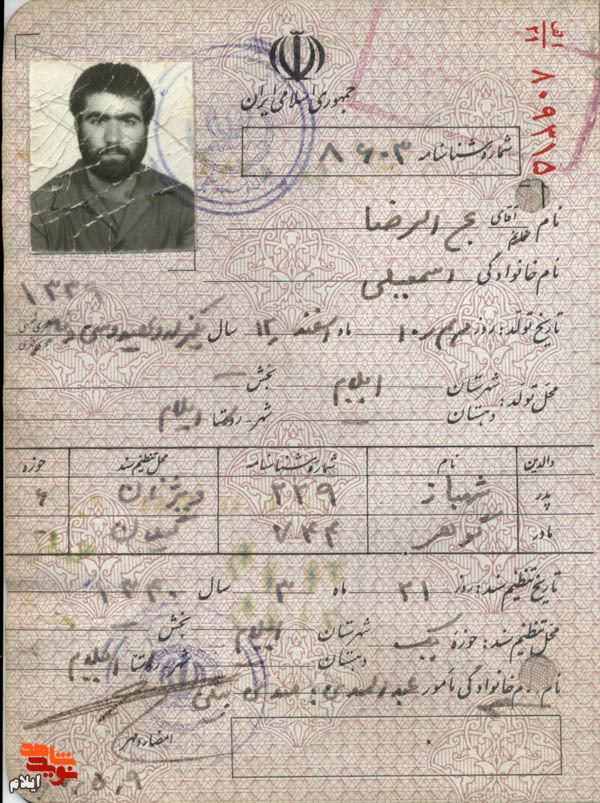 الف
۲۱
۸۰۹۳۱۵
جمهوری اسلامی ایران
شماره شناسنامه ۸۶۰۳
نام آقای خانم الرضا
نام خانوادگی اسمعیلی
۱۳۳۹
تاریخ تولد: روز ۱۰ ماه اسفند ۱۲ سال یکهزار و سیصد و سی و
محل تولد: شهرستان ایلام بخش
دهستان شهر - روستا ایلام
والدین نام شماره شناسنامه محل تنظیم سند حوزه
پدر شهباز ۲۲۹ ۶
مادر گوهر ۷۴۴
تاریخ تنظیم سند: روز ۲۱ ماه ۳ سال ۱۳۴۰
محل تنظیم سند: حوزه یک شهرستان ایلام بخش
دهستان شهر - روستا ایلام
نام خانوادگی مأمور
امضاء و مهر
شاهد
نوید
ایلام